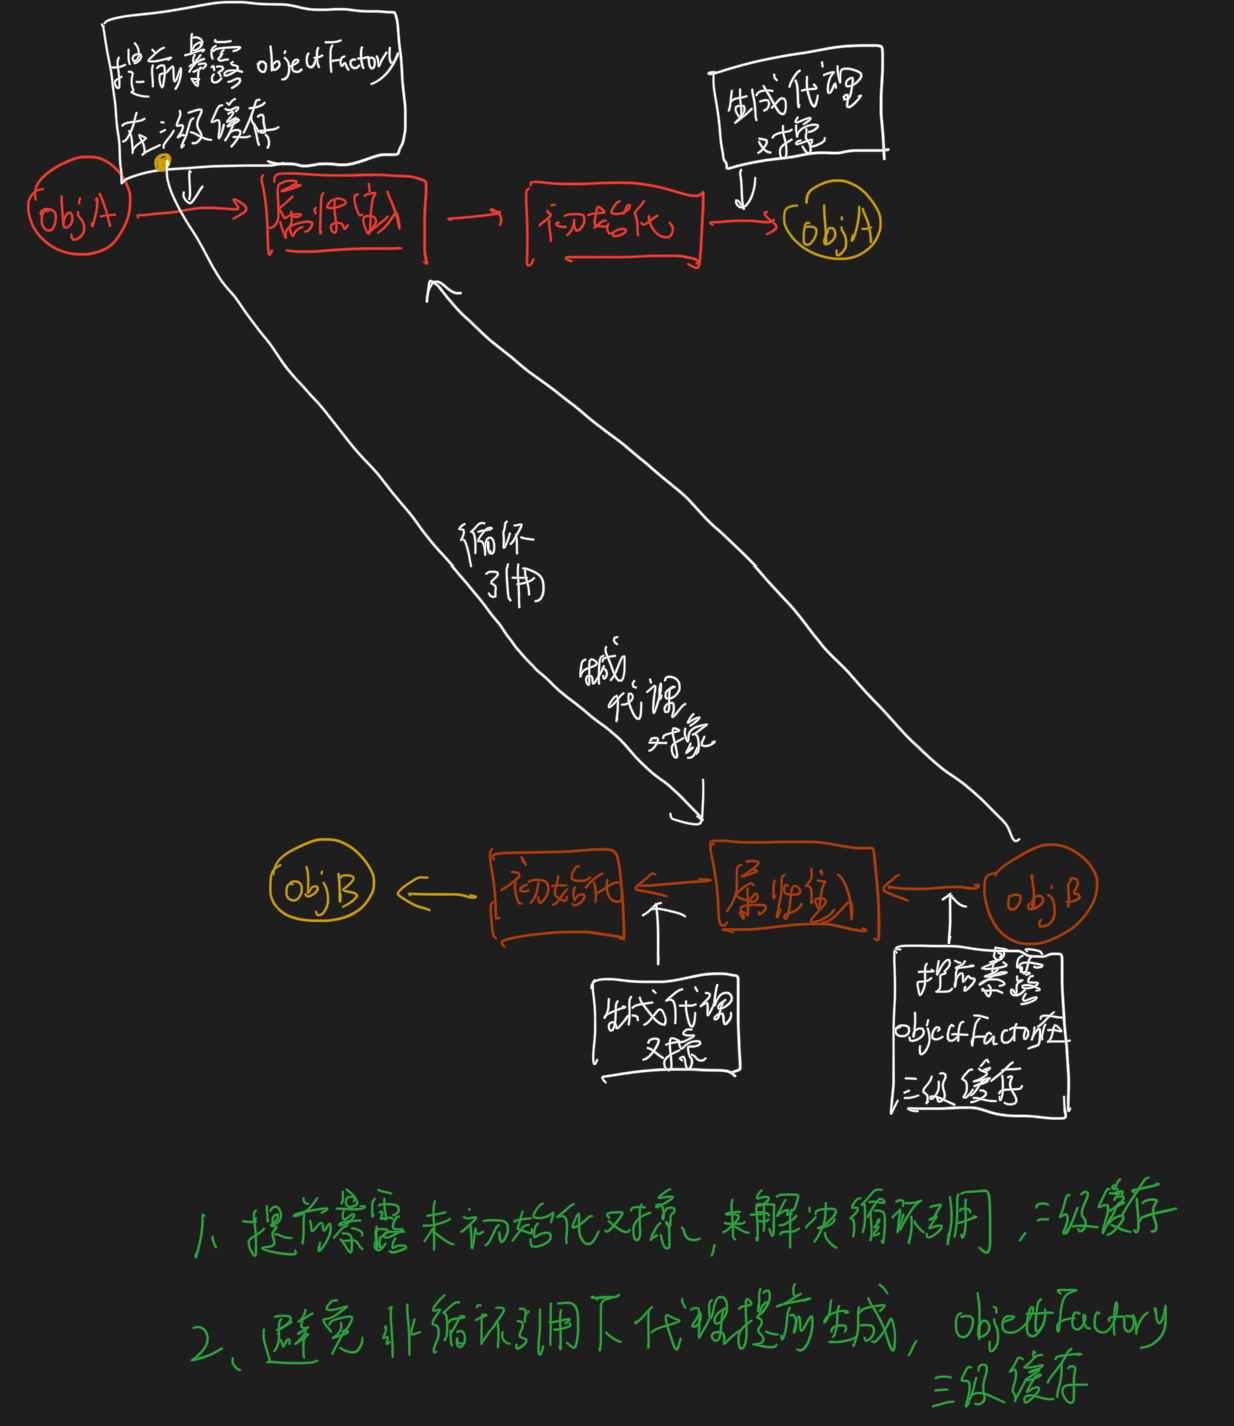 提前暴露objectFactory
在三级缓存
生成代理
对象
objA
属性注入
初始化
objA
循环
引用
生成
代理
对象
objB
初始化
属性注入
objB
生成代理
对象
提前暴露
objectFactory在
三级缓存
1、提前暴露未初始化对象,来解决循环引用,二级缓存
2、避免非循环引用下代理提前生成,objectFactory
三级缓存